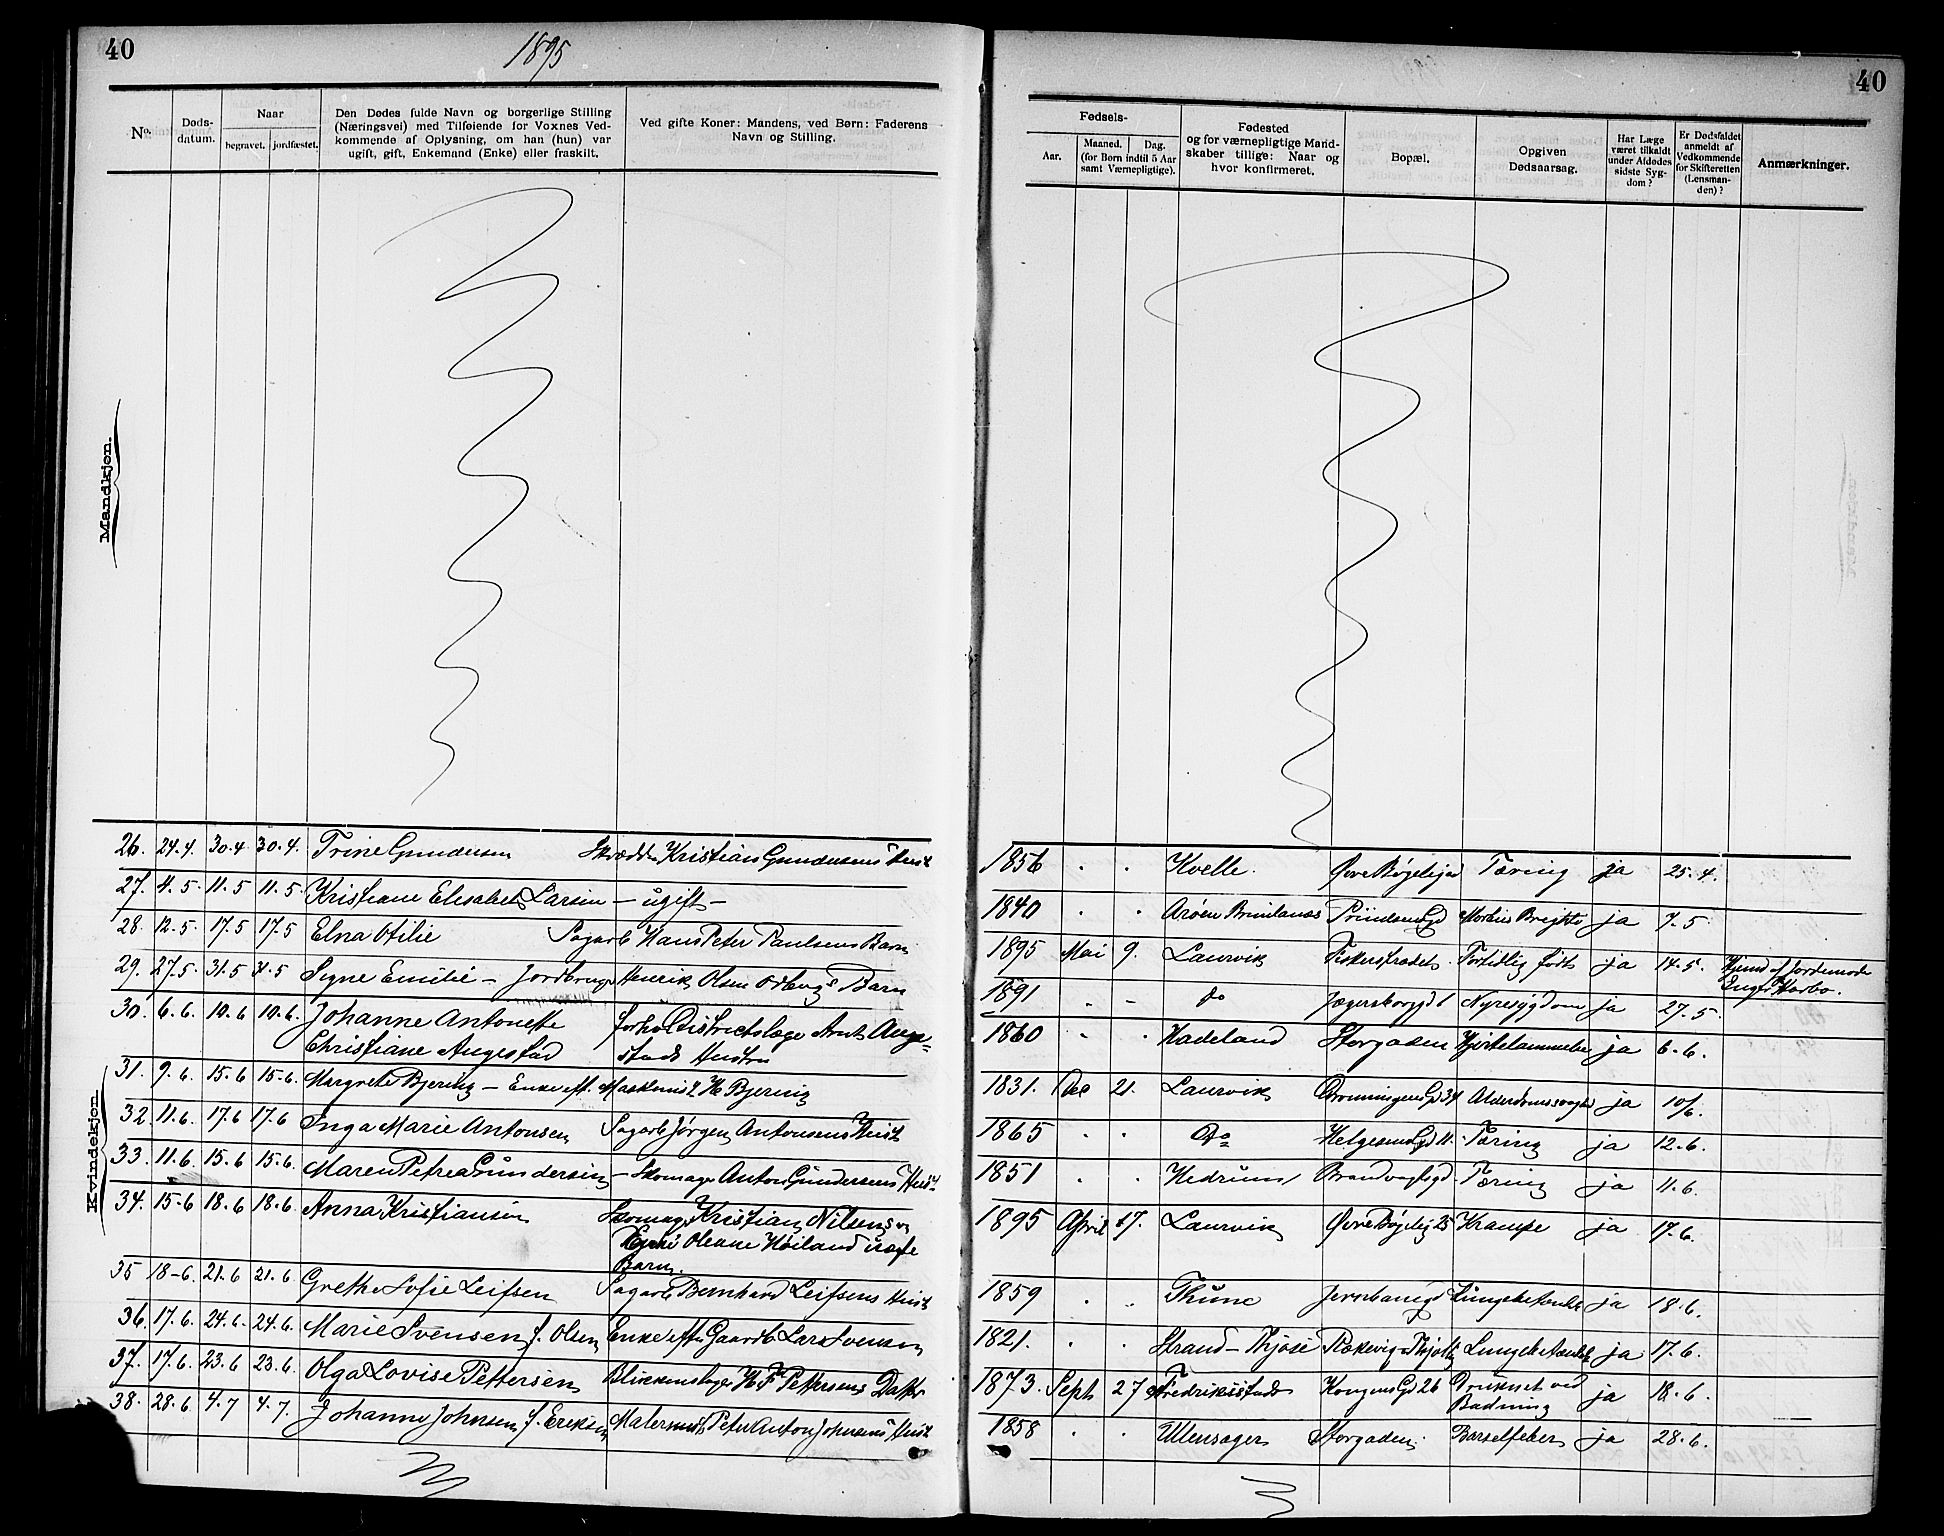 40
1895
40
No.
Døds-
datum.
Naar
begravet.
jordfæstet.
Den Dødes fulde Navn og borgerlige Stilling
(Næringsvei) med Tilføiende for Voxnes Ved-
kommende af Oplysning, om han (hun) var
ugift, gift, Enkemand (Enke) eller fraskilt.
Ved gifte Koner: Mandens, ved Børn: Faderens
Navn og Stilling.
Fødsels-
Aar.
Maaned.
Dag.
(for Børn indtil 5 Aar
samt Værnepligtige).
Fødested
og for værnepligtige Mand-
skaber tillige: Naar og
hvor konfirmeret.
Bopæl.
Opgiven
Dødsaarsag.
Har Læge
været tilkaldt
under Afdødes
sidste Syg-
dom?
Er Dødsfaldet
anmeldt af
Vedkommende
for Skifteretten
(Lensman-
den)?
Anmærkninger.
Mandkjøn.
Kvindekjøn
26. 24.4. 30.4 30.4. Trine Gundersen Skrædder Kristian Gundersens Hust
1856 . . Kvelle. Øvre Bøgeligd Tæring ja 25.4.
27. 4.5. 11.5 11.5. Kristiane Elisabeth Larsen – ugift –
1840 . . Arøen Brunlanæs Prindsensgd Morbus Brightii ja 7.5
28. 12.5. 17.5 17.5 Elna Otilie Sagarb Hans Peter Paulsens Barn
1895 Mai 9. Laurvik Fiskerstrædet. Fortidlig født ja 14.5. Hjemd af Jordemode
29. 27.5. 31.5 31.5 Signe Emilie – Jordbruger Henrik Olsen Odbergs Barn
1891 . – do Jægersborggd 1 Nyresygdom ja 27.5.
30. 6.6. 10.6 10.6. Johanne Antonette forhv Districtslæge Arnt Auge=
Christiane Augestad stads Hustru
1860 . . Hadeland Storgaden Hjertelammelse ja 6.6.
31. 9.6. 15.6 15.6. Margrethe Bjering – Enke eft. Maskinist H. Bjering
1831. Dec 21. Laurvik Dronningensgd 34 Alderdomssvaghed ja 10/6.
32. 11.6. 17.6 17.6 Inga Marie Antonsen Sagarb Jørgen Antonsens Hust
1865 . . Do Helgesensgd 11. Tæring ja 12.6.
33. 11.6. 15.6 15.6. Maren Petrea Gundersen – Skomager Anton Gundersens Hust
1851 . . Hedrum Brandvagtsgd. Tæring ja 11.6.
34. 15.6 18.6 18.6. Anna Kristiansen Skomager Kristian Nilsens og
Oleane Høiland uægte
Barn.
1895 April 17. Laurvik Øvre Bøgelig 25 Krampe ja 17.6.
35 18-6. 21.6 21.6. Grethe Sofie Leifsen Sagarb Bernhard Leifsens Hust
1859 . . Thune Jernbanegd Lungebetændelse ja 18.6.
36. 17.6. 24.6. 24.6. Marie Svensen f. Olsen Enke efter Gaardb Lars Svensen
1821. . . Strand – Thjøse Stokevig Thjølling Lungebetændelse ja 17.6.
37. 17.6. 23.6 23.6. Olga Lovise Pettersen Blikkenslager H F Pettersens Datter
1873. Sept 27 Fredrikstad Kongensgd 26 Druknet ved
Badning ja 18.6.
38. 28.6 4.7 4.7. Johanne Johnsen f. Eriksen Malermester Peter Anton Johnsens Hust
1858 . . Ullensager Storgaden. Barselfeber ja 28.6.